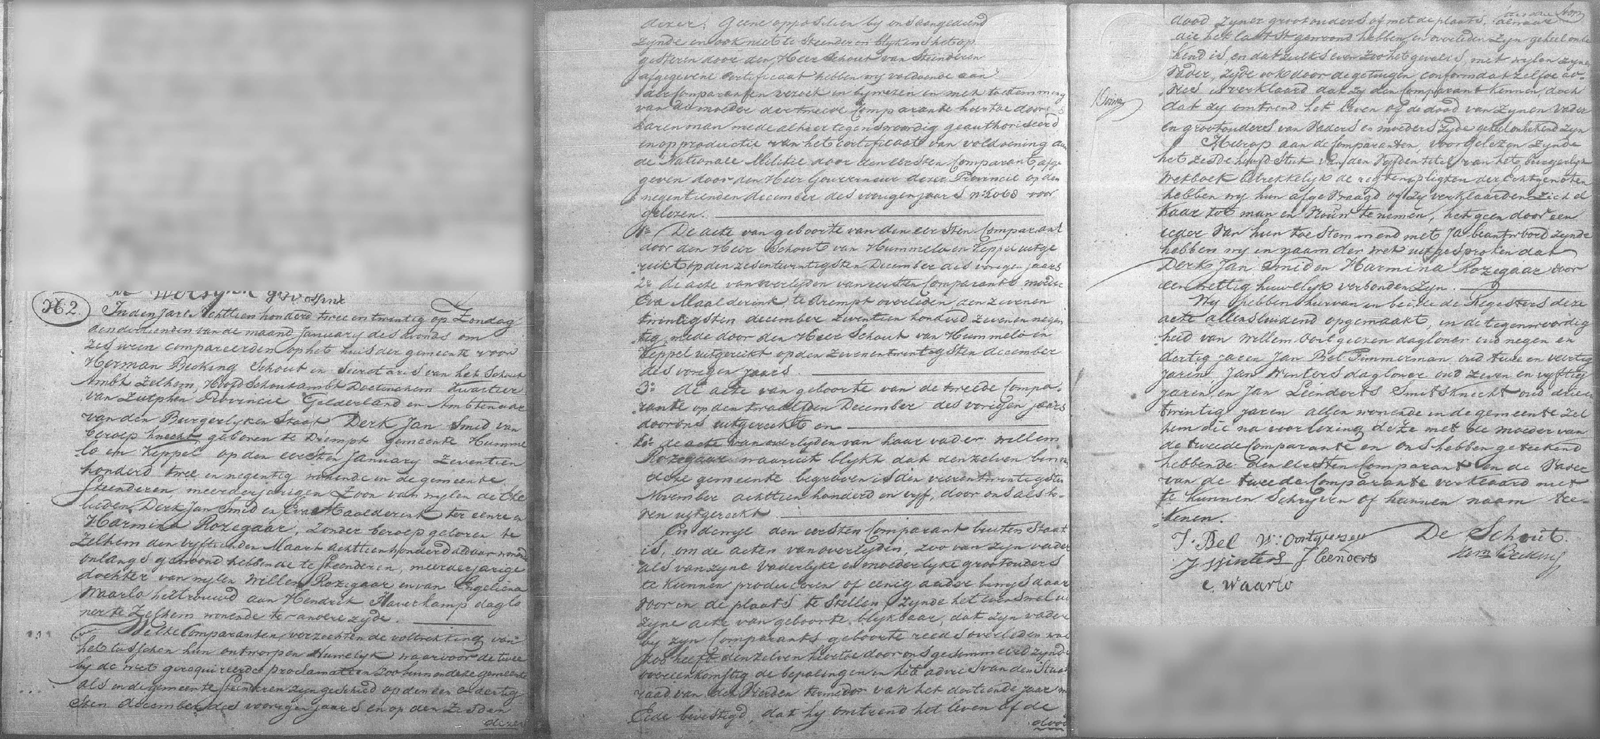 N 2.
In den Jare Achttien honderd twee en twintig op Zondag
den dertienden van de maand January des avonds om
zes uren compareerden op het huis der gemeente voor
Herman Beeking Schout en Secretaris van het Schout
Ambt Zelhem, Hoofd Schoutambt Doetinchem Kwartier
van Zutphen Provincie Gelderland en Ambtenaar
van den Burgerlyken Staat Derk Jan Smid van
beroep knecht geboren te Drempt gemeente Humme
lo en Keppel op den eersten January zeventien
honderd twee en negentig wonende in de gemeente
Steenderen meerderjarigen Zoon van wylen de Ehe
lieden Derk Jan Smid en Eva Maalderink ter eenre en
Harmina Rozegaar, zonder beroep geboren te
Zelhem den vyftienden Maart achttien honderd aldaar wonende
onlangs gewoond hebbende te Steenderen, meerderjarige
dochter van wylen Willem Rozegaar en van Engelina
Waarlo hertrouwd aan Hendrik Haverkamp daglo
ner te Zelhem wonende ter andere zyde.
Welke Comparanten verzochten de voltrekking van
het tusschen hun ontworpen Huwelyk waarvoor de twee
by de wet gerequireerde proclamatien zoo binnen deze gemeente
als in de gemeente Steenderen zyn geschied op den der en dertig
sten december des voorigen jaars en op den Zesden
dezer
dezer. Geene oppositien by ons aangediend
zynde en ook niet te Steenderen blykens het op
gisteren door den Heer Schout van Steenderen
afgegeven Certificaat hebben wy voldoende aan
der Comparanten verzoek en bywezen en met toestemming
van de moeder der tweede Comparante hiertoe door
haren man mede alhier tegenswoordig geauthoriseerd
en op productie van het certificaat van voldoening aan
de Nationale Militie door den eersten Comparant afge
geven door den Heer Gouverneur dezer Provincie op den
negentienden december des vorigen jaars N 2068 voor
gelezen.
1e De acte van geboorte van den eersten Comparant
door den Heer Schout van Hummelo en Keppel uitge
reikt op den zesentwintigsten December des vorigen jaars
2e de acte van overlyden van eersten Comparants moeder
Eva Maalderink te Drempt overleden den zeven en
twintigsten december zeventien honderd zeven en negen
tig, mede door den Heer Schout van Hummelo en
Keppel uitgereikt op den zevenentwintigsten december
des vorigen jaars.
3e de acte van geboorte van de tweede Compa-
rante op den twaalfden December des vorigen jaars
door ons uitgereikt en
4e de acte van overlyden van haar vader Willem
Rozegaar waaruit blykt dat denzelven binnen
deze gemeente begraven is den vierden twintigsten
November achttien honderd en vyf, door ons als bo-
ven uitgereikt
En dewyl den eersten Comparant buiten Staat
is, om de acten van overlyden, zoo van zyn vader
als van zyne vaderlyke en moederlyke grootouders
te kunnen produceren of eenig andere bewys daar
voor in de plaats te stellen, zynde het evenwel uit
zyne acte van geboorte blykbaar, dat zyn vader
by zyn Comparants geboorte reeds overleden was
zoo heeft denzelven hiertoe door ons gesommeerd zynde
overeenkomstig de bepalingen en het advies van den Staats
raad van den Vierden Termidor van het dertiende jaar met
Eede bevestigd, dat hy omtrend het leven of de
dood
dood zyner grootouders of met de plaats, 
die het laatst gewoond hebben en overleden zyn geheel onbe
kend is, en dat zulks even zoo het geval is, met wylen zyn
Vader, zynde ook door de getuigen conform dat zelfde ad-
vies verklaard dat zy den Comparant kennen, doch
dat zy omtrend het leven of de dood van zynen Vader
en grootouders van Vaders en moeders zyde geheel onbekend zyn
Hierop aan de Comparanten, voorgelezen zynde
het zesde hoofdstuk van den Vyfden titel van het burgerlyk
Wetboek betrekkelyk de regten en pligten der Echtgenoten
hebben wy hun afgevraagd of zy verklaarden zich el
kaar tot man en Vrouw te nemen, het geen door een
ieder van hun toestemmend met Ja beantwoord zynde
hebben wy in naam der Wet uitgesproken dat
Derk Jan Smid en Harmina Rozegaar door
een wettig huwelyk verbonden zyn.
Wy hebben hiervan in beide de Registers deze
acte allesluidend opgemaakt, in de tegenwoordig
heid van Willem Oortgiezen dagloner oud negen en
dertig jaren Jan Bel Timmerman oud twee en veertig
jaren Jan Winters dagloner oud zeven en vyftig
jaren en Jan Leenderts Smitsknecht oud drie en
twintig jaren allen wonende in de gemeente Zel
hem die na voorlezing deze met de moeder van
de tweede Comparante en ons hebben geteekend
hebbende den eersten Comparant en de Vader
van de tweede Comparante verklaard niet
te kunnen Schryven of hunnen naam tee-
kenen.
J: Bel W: Oortgiezen De Schout.
J Winters J Leenderts
E. Waarlo